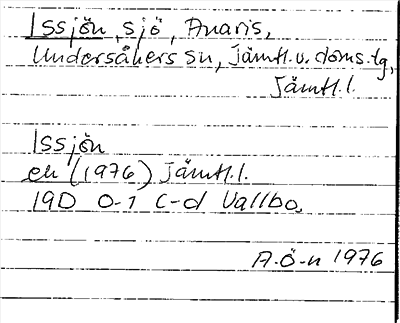 Issjön, sjö, Anaris,
Undersåkers sn, Jämtl. v. doms.tg,
Jämtl. l.
Issjön
ek (1976) Jämtl. l.
19D 0-1 c-d Vallbo.
A.Ö-n 1976